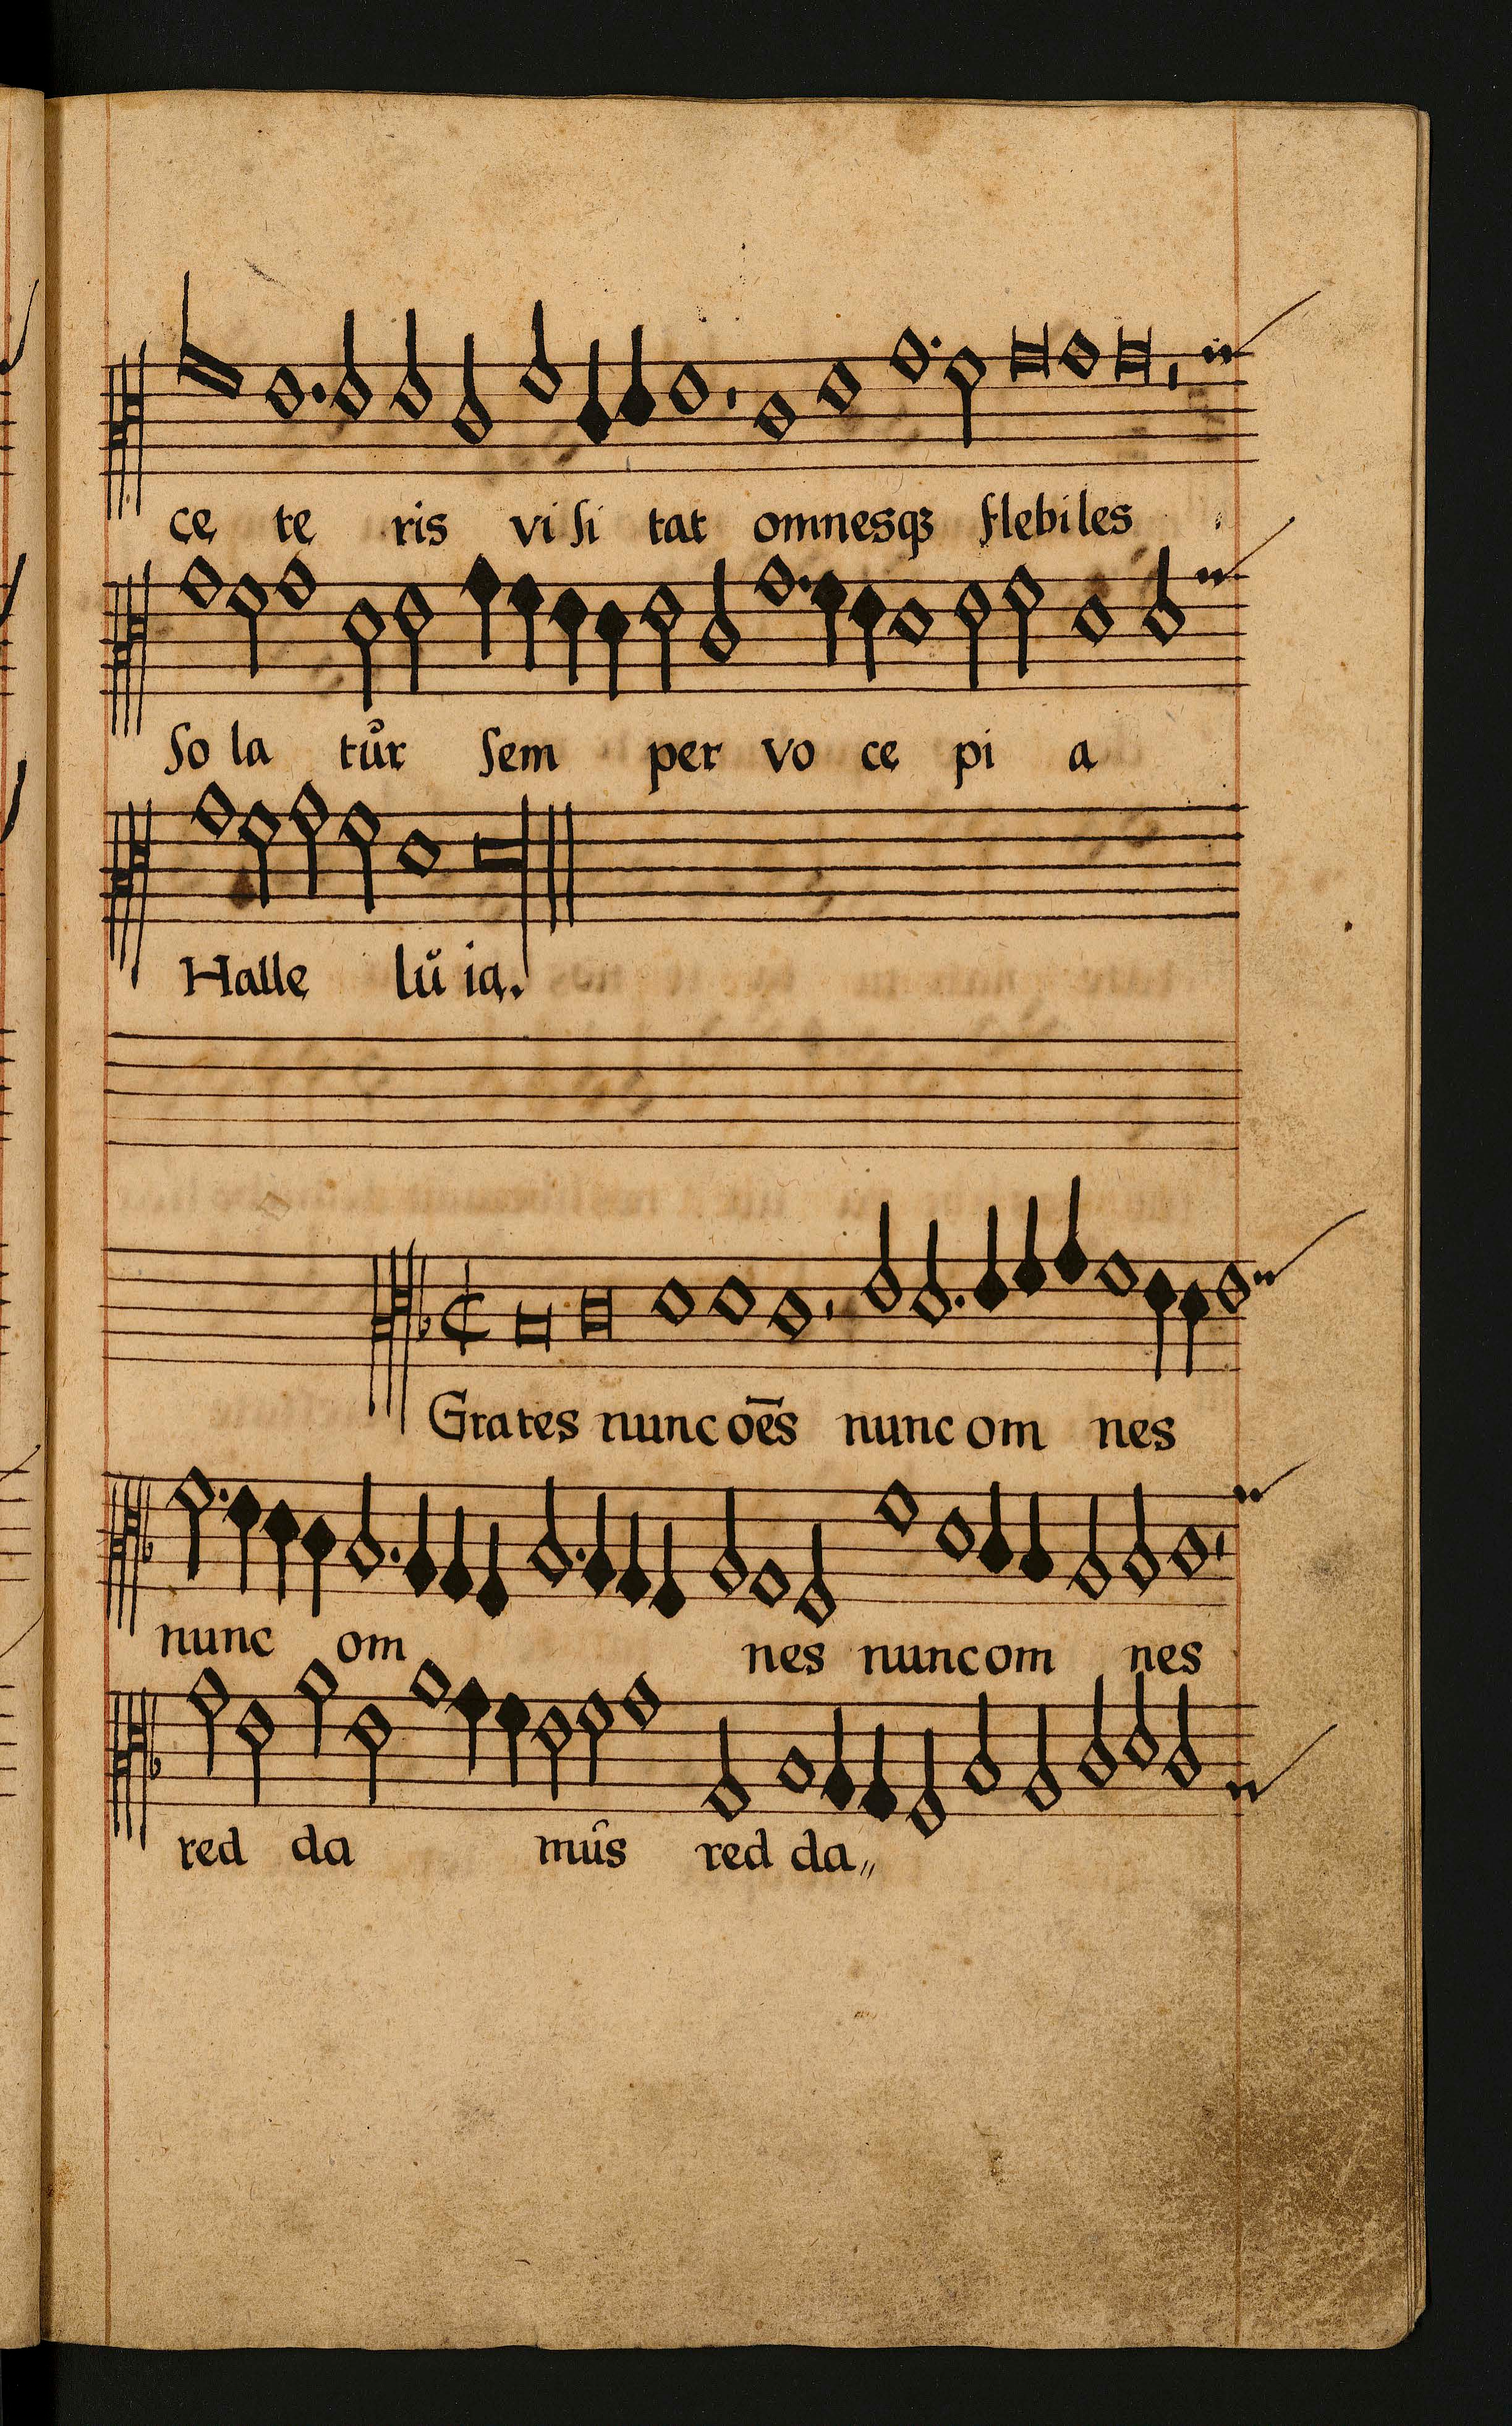 cę te ris vi ſi tat omnesqꝫ flebiles
So la tůr ſem per vo cę pi a
Halle lŭ ia.
Grates nunc oēs nunc om nes
nunc om nes nunc om nes
red da mûs red da„